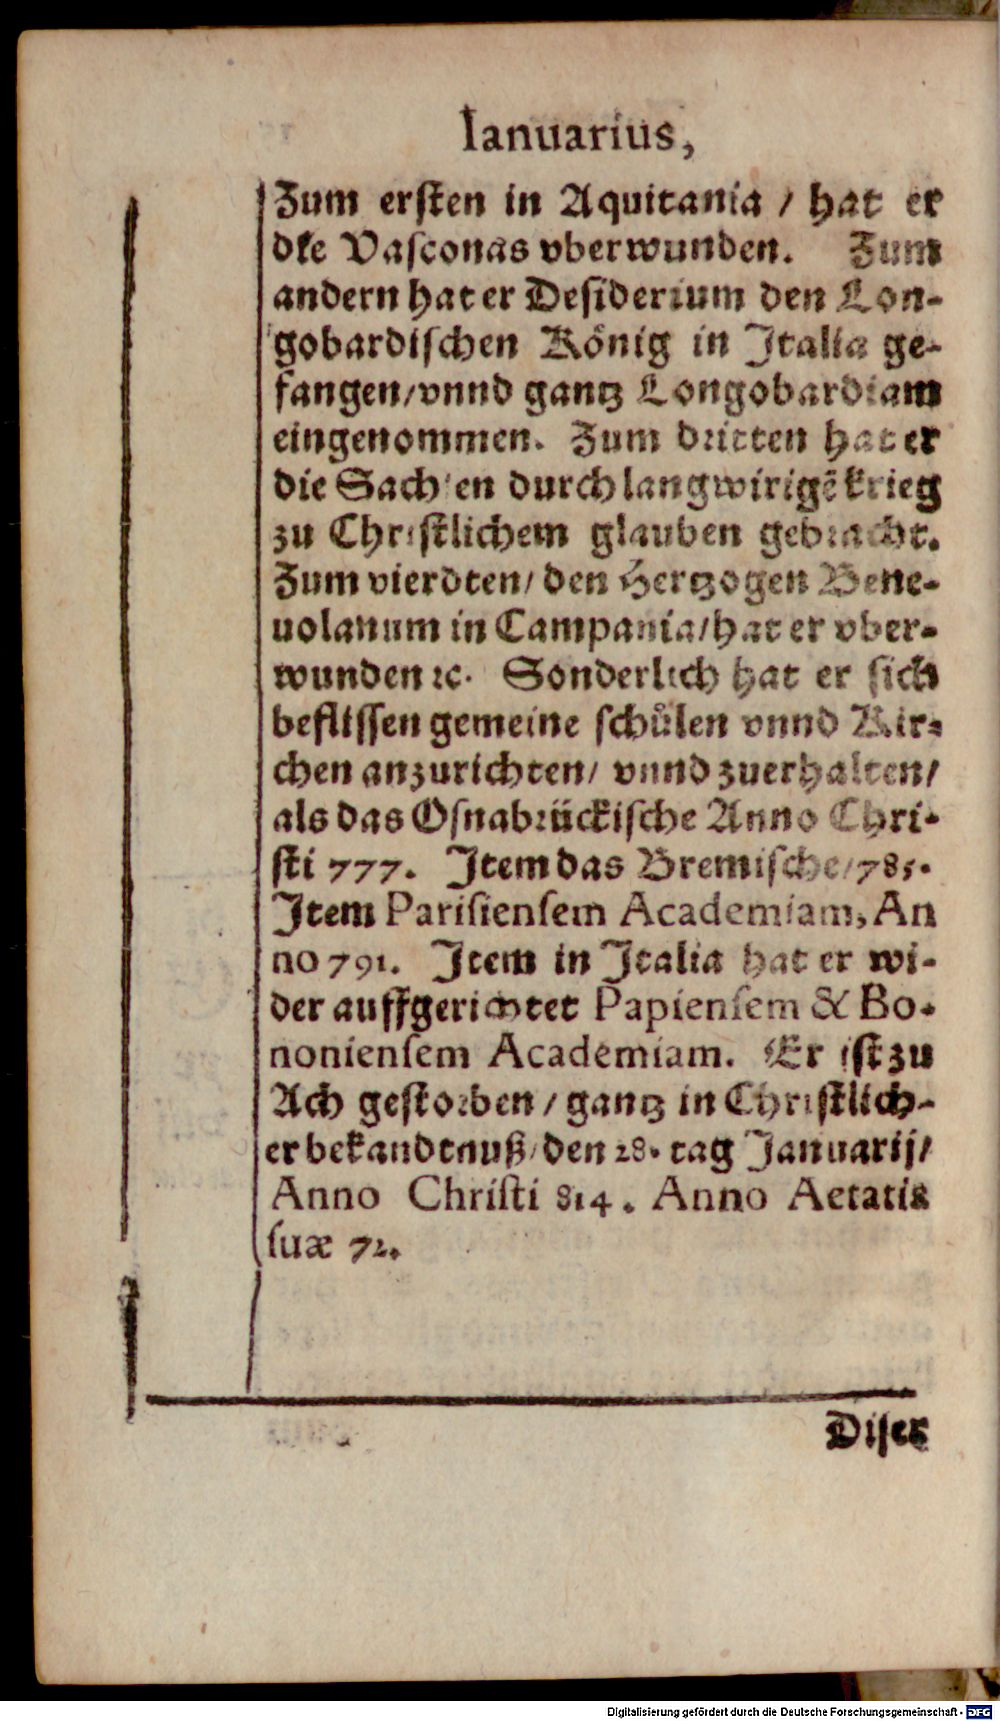 Ianuarius,
Zum ersten in Aquitania / hat er
die Vasconas vberwunden. Zum
andern hat er Desiderium den Lon-
gobardischen König in Italia ge-
fangen/vnnd gantz Longobardiam
eingenommen. Zum dritten hat er
die Sachsen durch langwirigẽ krieg
zu Christlichem glauben gebracht.
Zum vierdten/ den Hertzogen Bene-
uolanum in Campania/hat er vber-
wunden ꝛc. Sonderlich hat er sich
beflissen gemeine schůlen vnnd Kir-
chen anzurichten/ vnnd zuerhalten/
als das Osnabrückische Anno Chri-
sti 777. Item das Bremische/785.
Item Parisiensem Academiam, An
no 791. Item in Italia hat er wi-
der auffgerichtet Papiensem & Bo-
noniensem Academiam. Er ist zu
Ach gestorben / gantz in Christlich-
er bekandtnuß/den 28. tag Januarij/
Anno Christi 814. Anno Aetatis
suæ 72.
Diser
Digitalisierung gefördert durch die Deutsche Forschungsgemeinschaft - DFG